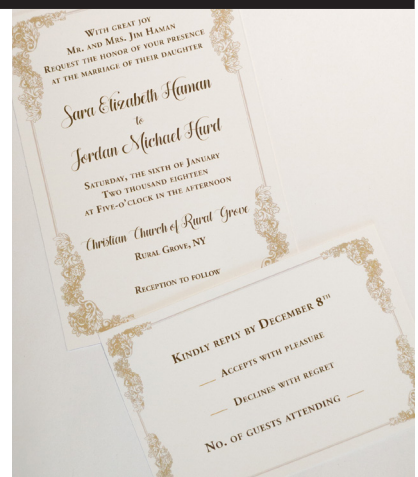 With great joy
Mr. and Mrs. Jim Haman
Request the honor of your presence
at the marriage of their daughter
Sara Elizabeth Haman
to
Jordan Michael Hurd
Saturday, the sixth of January
Two thousand eighteen
at Five-o'clock in the afternoon
Christian Church of Rural Grove
Rural Grove, NY
Reception to follow
Kindly reply by December 8th
__ Accepts with pleasure
__ Declines with regret
No. of guests attending __